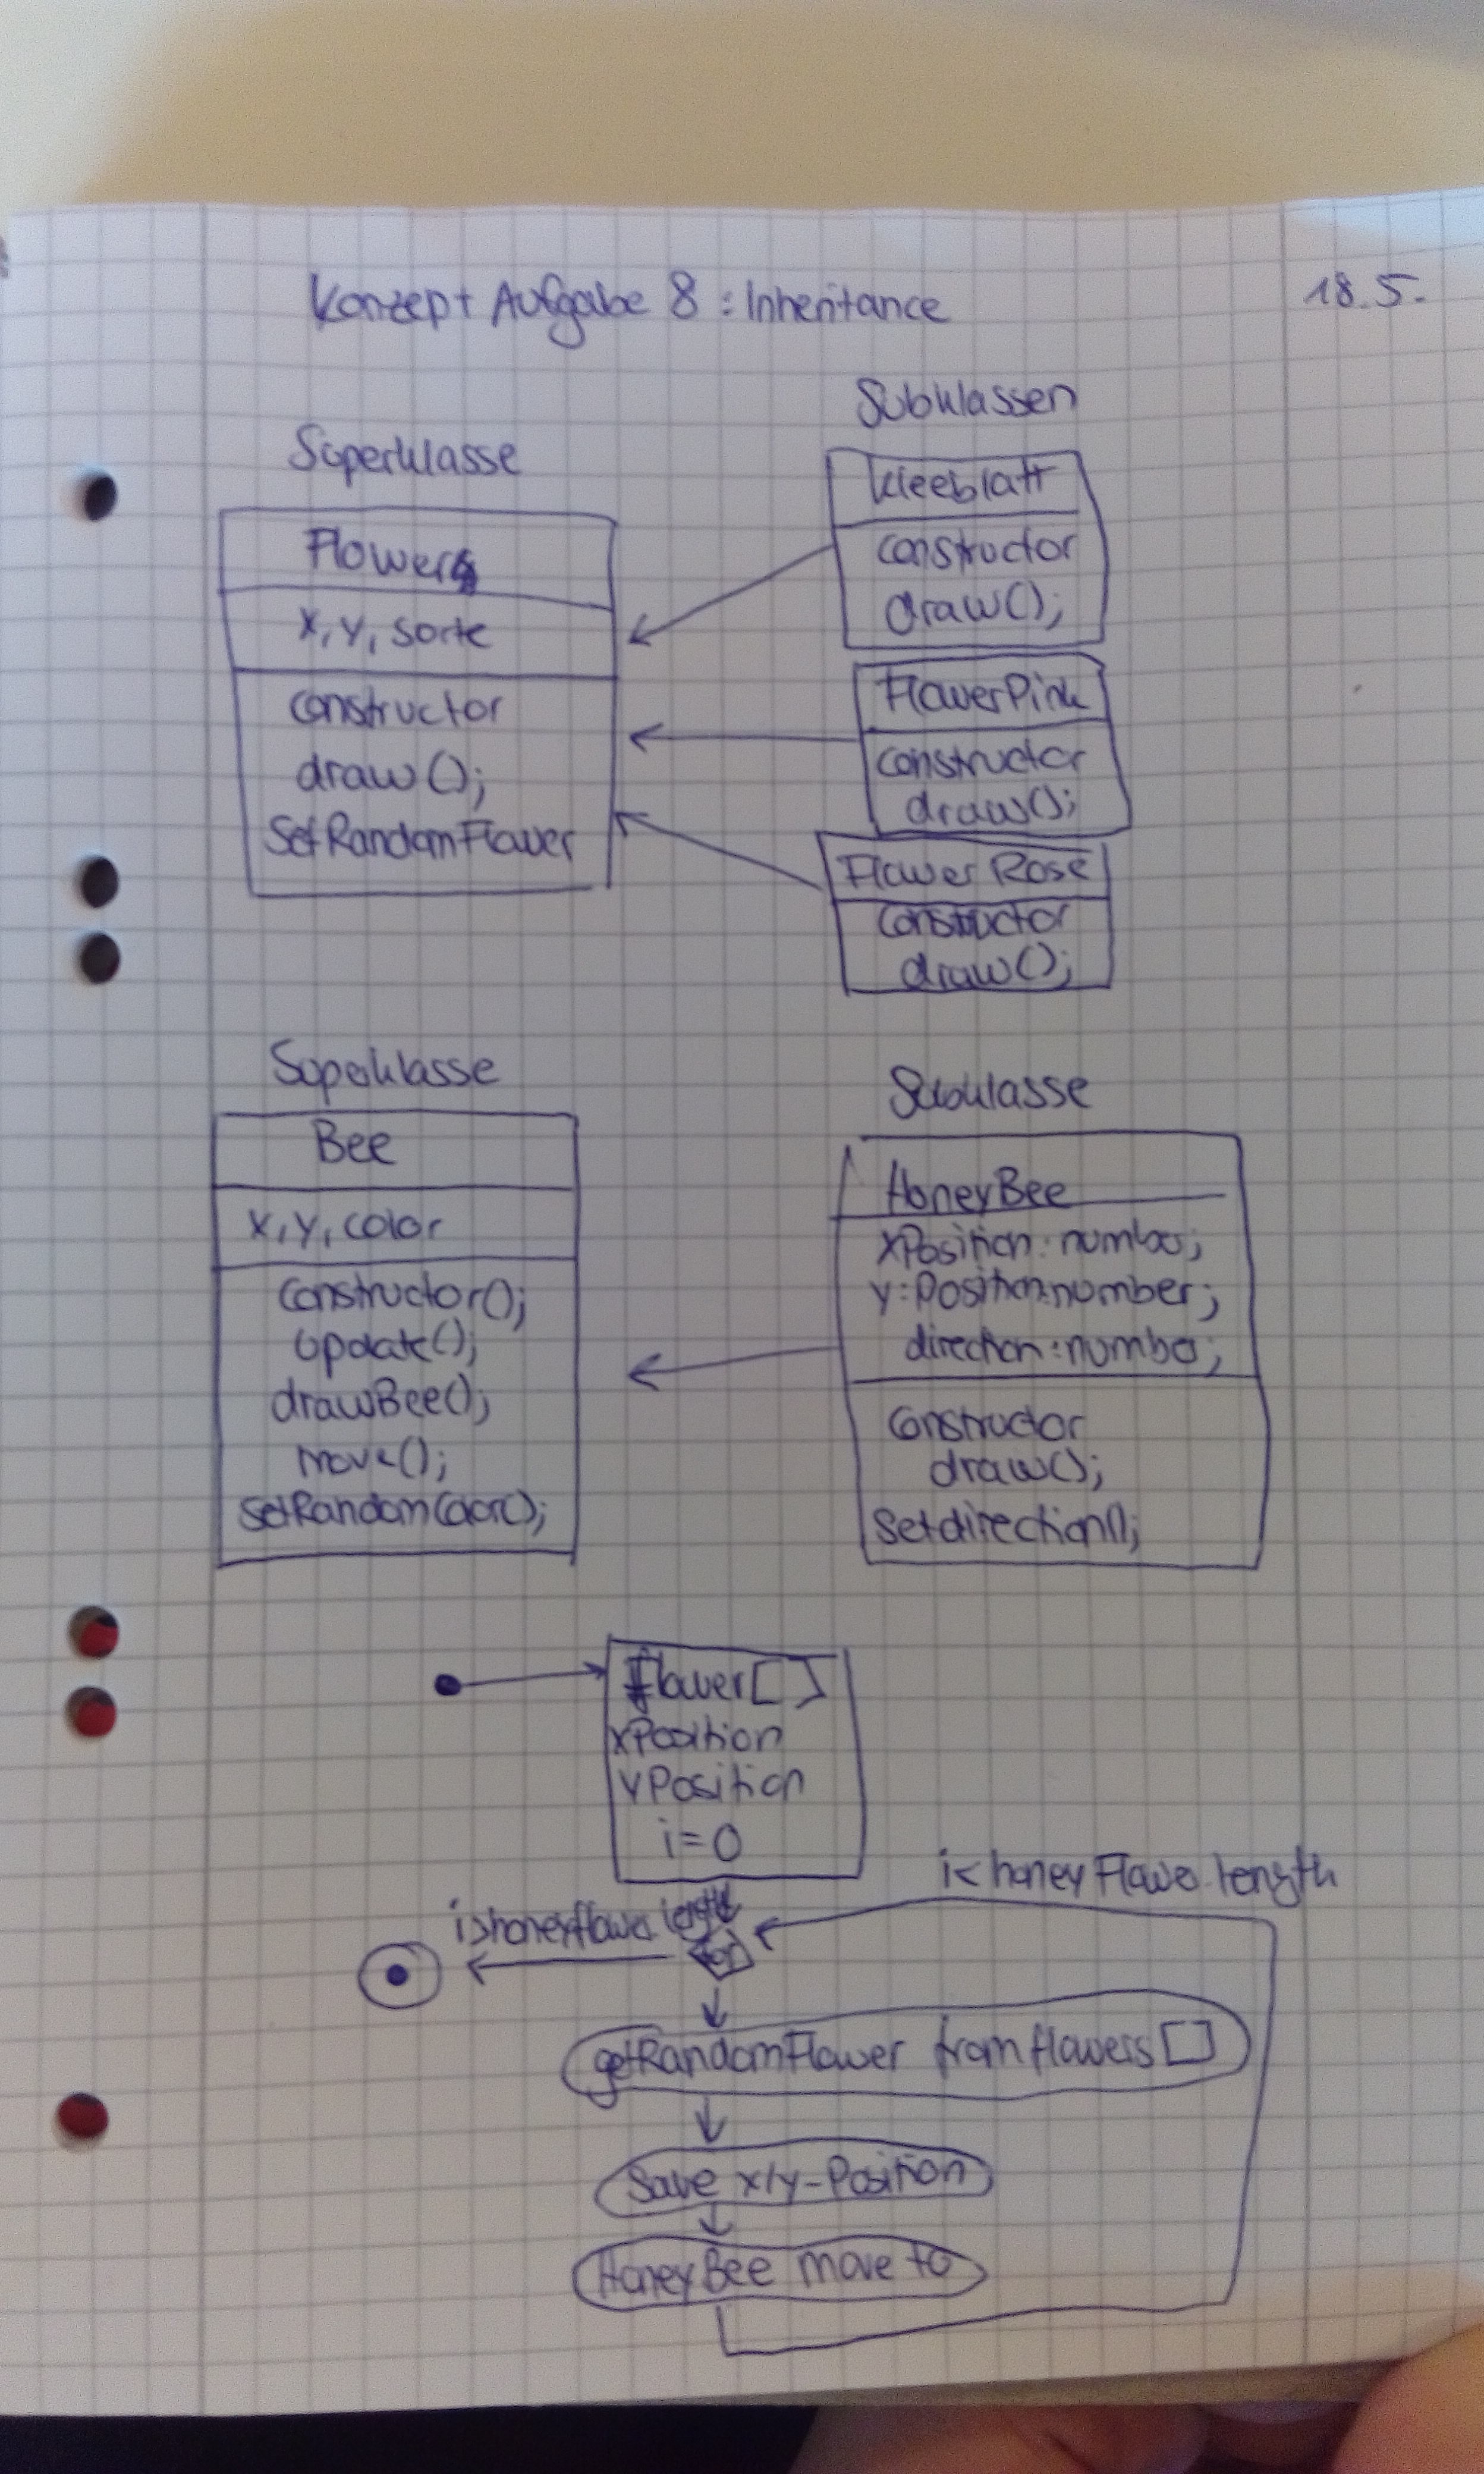 Konzept Aufgabe 8 : Inheritance
18.5.
Superklasse
Flower
x, y, sorte
constructor
draw();
SetRandomFlower
Subklassen
Kleeblatt
constructor
draw();
FlowerPink
constructor
draw();
Flower Rose
constructor
draw();
Superklasse
Bee
x, y, color
constructor();
update();
drawBee();
move();
setRandomColor();
Subklasse
HoneyBee
xPosition: number;
y:Position:number;
direction:number;
Constructor
draw();
Setdirection();
flower[ ]
xPosition
yPosition
i=0
i< honeyFlower.length
i>honeyflower.length
for
getRandomFlower from flowers[ ]
Save x/y-Position
HoneyBee move to